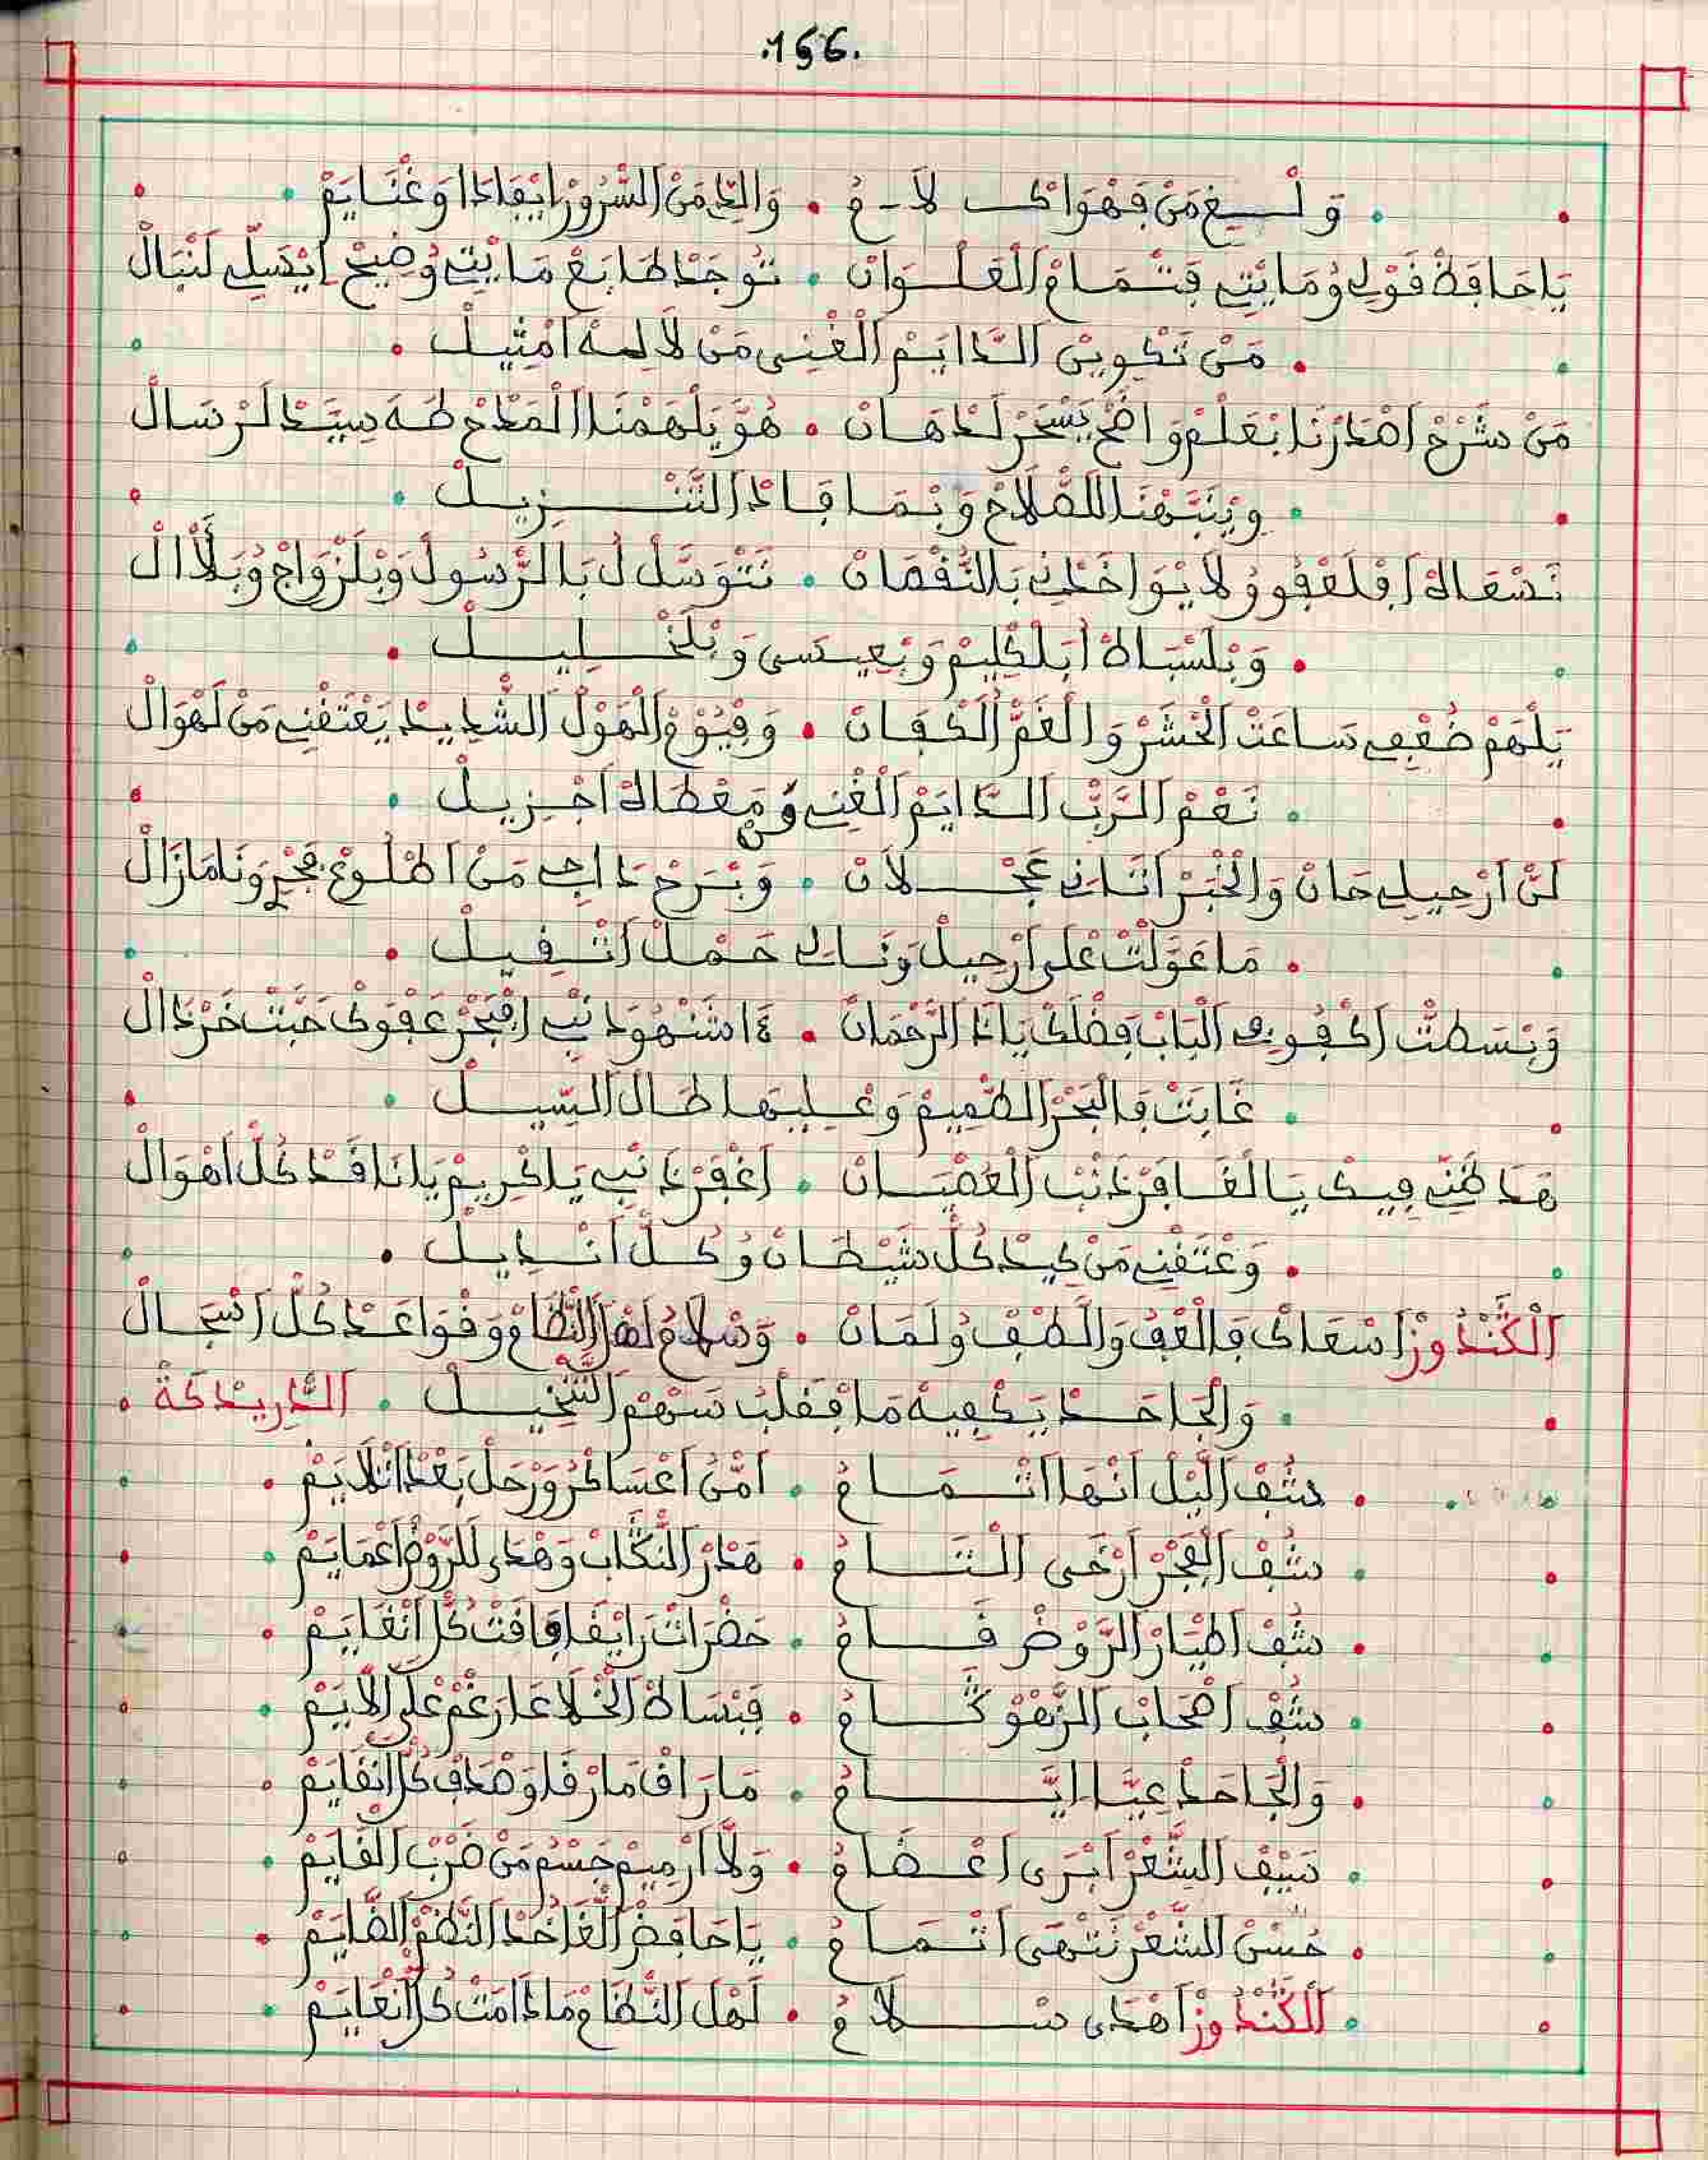 .166.
وَلْسِيغْ مَنْ فَهْوَاكْ لَامْ . وَالِّي مَنْ السُّرُورْ ايْفَادَا وَغْنَايَمْ
يَا حَافَظْ قَوْلِي وُمَا يْتِي فَتْمَامْ الْعَلْوَانْ . تُوجَدْ طَابَعْ مَا يْتِي وُضِيحْ ايْسَلِّي لَنْبَالْ
مَنْ تَكْوِينْ الدَّايَمْ الْغْنِي مَنْ لَا لِيهْ امْثِيلْ
مَنْ شَرْحْ اصْدَرْنَا بْعَلْمْ وَاضَحْ يَسْحَرْ لَدْهَانْ . هُوَّ يَلْهَمْنَا الْمَدْحْ طَهَ سِيَّدْ لَرْسَالْ
وِيْنَبَّهْنَا اللَصْلَاحْ وَبْمَا فَادْ التَّنْزِيلْ
نَسْعَاهْ ابْلَعْفُو وُلَا يْوَاخَدْنِي بَالنُّقْصَانْ . نَتْوَسَّلْ لُ بَالرَّسُولْ وَبْلَزْوَاجْ وُبَلْأَالْ
وَبْلَسْبَاطْ ابَلْكْلِيمْ وَبْعِيسَى وَبْلَخْلِيلْ
يَلْهَمْ ضُعْفِي سَاعَتْ الْحْشَرْ وَالْغَمّْ الْكَفَانْ . وَفْيُومْ الْهَوْلْ الشّْدِيدْ يَعْتَقْنِي مَنْ لَهْوَالْ
نَعْمْ الرَّبّْ الدَّايَمْ الْغْنِي وُمَنْ عْطَاهْ اجْزِيلْ
لَنْ ارْحِيلِي حَانْ وَالْخْبَرْ اتَانِي عَجْلَانْ . وَبْرَحْ دَاعِي مَنْ اطْلُوعْ فَجْرِ وَنَا مَازَالْ
مَا عَوَّلْتْ عْلَى ارْحِيلْ وَنَايَا حَمْلْ اتْقِيلْ
وَبْسَطْتْ اكْفُوفِي الْبَابْ فَضْلَكْ يَا دَا الرَّحْمَانْ . دَا شَنْهُو دَنْبِي افْبَحْرْ عَفْوَكْ حَبَّتْ خَرْدَالْ
غَابَتْ فَالْبَحْرْ الطْمِيمْ وَعْلِيهَا طَالْ السِّيلْ
هَدَا ظَنِّي فِيكْ يَا الْغَافَرْ دَنْبْ الْعَصْيَانْ . اغْفَرْ دَنْبِي يَا كْرِيمْ يَا نَاقَدْ كُلّْ اهْوَالْ
وَعْتَقْنِي مَنْ كِيدْ كُلّْ شَيْطَانْ وُكُلّْ انْدِيلْ
الْكَنْدُوزْ اسْعَاكْ فَالْعْفُ وَالَّطْفْ وُلَمَانْ . وَسْلَامُ لَهْلْ النّْظَامْ وَقْوَاعَدْ كُلّْ اسْجَالْ
وَالْجَاحَدْ يَكْفِيهْ مَا فْقَلْبُ سَهْمْ التَّنْخِيلْ . الدّْرِيدْكَةْ
شُفْ الَّيْلْ انْهَا اتْمَامُ . امْنْ اعْسَاكْرُ وَرْحَلْ بَعْدْ اتْلَايَمْ
شُفْ الْفْجَرْ ارْخَى الْتَامُ . هَدَرْ النّْكَابْ وَهْدَى للرَّوْضْ اعْمَايَمْ
شُفْ اطْيَارْ الرَّوْضْ قَامُ . حَضْرَاتْ رَايْقَا وَفَاقَتْ كُلّْ انْغَايَمْ
شُفْ اصْحَابْ الزّْهْوْ كَامُ . فَبْسَاطْ الْخْلَاعَا رَغْمْ عْلَى الَّايَمْ
وَالْجَاحَدْ عِيَّا ايَّامُ . مَا رَافَ مَا رْقَا وَصَادَفْ كُلّْ انْقَايَمْ
سَيْفْ الشَّعْرْ ابْرَى اعْضَامُ . وَلَّا ارْمِيمْ جَسْمُ مَنْ ضَرْبْ الْقَايَمْ
حُسْنْ الشَّعْرْ نَتْهَى اتْمَامُ . يَا حَافَضْ الْغَا خُدْ النَّظْمْ الضَّايَمْ
الْكَنْدُوزْ اهْدَى سْلَامُ . لَهْلْ النّْظَامْ مَادَامَتْ كُلّْ انْعَايَمْ